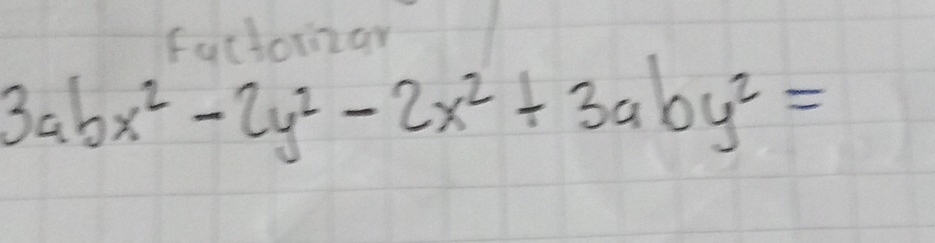 Factorizar
3abx² - 2y² - 2x² + 3aby² =